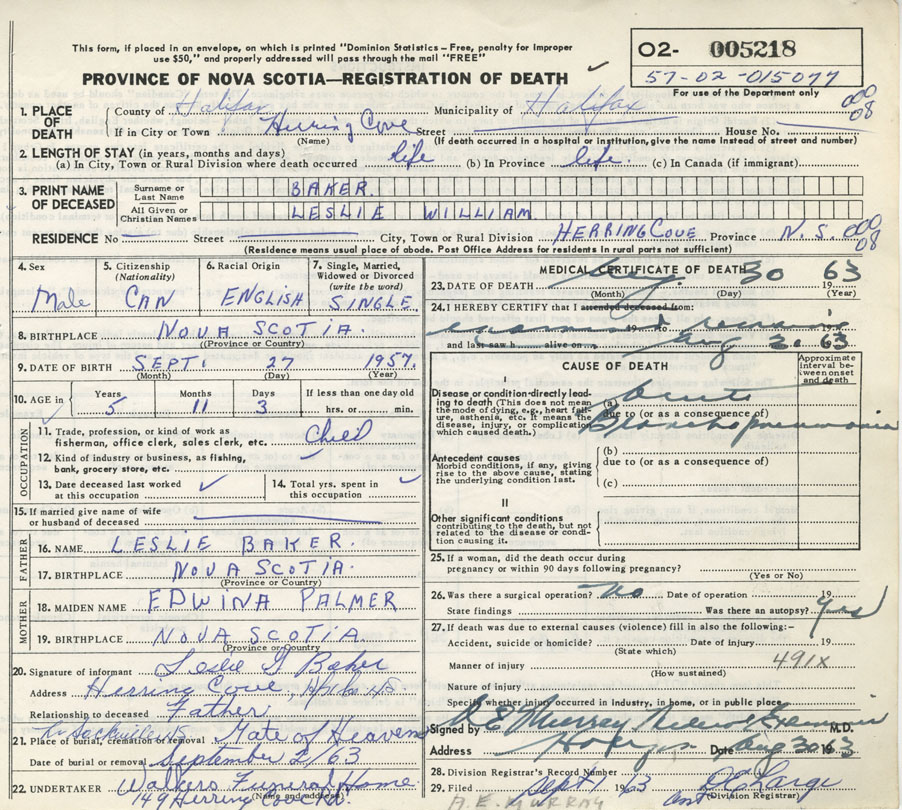 This form, if placed in an envelope, on which is printed "Dominion Statistics – Free, penalty for Improper
use $50," and properly addressed will pass through the mail "FREE"
PROVINCE OF NOVA SCOTIA—REGISTRATION OF DEATH
O2- 005218
57-02-015077
For use of the Department only
1. PLACE OF DEATH County of Halifax Municipality of Halifax 000 08
If in City or Town Herring Cove Street House No.
(Name) (If death occurred in a hospital or institution, give the name instead of street and number)
2. LENGTH OF STAY (in years, months and days)
(a) In City, Town or Rural Division where death occurred life (b) In Province life. (c) In Canada (if immigrant)
3. PRINT NAME OF DECEASED
Surname or Last Name BAKER
All Given or Christian Names LESLIE WILLIAM
RESIDENCE No Street City, Town or Rural Division HERRING COVE Province N.S. 000 08
(Residence means usual place of abode. Post Office Address for residents in rural parts not sufficient)
4. Sex Male
5. Citizenship (Nationality) CAN
6. Racial Origin ENGLISH
7. Single, Married, Widowed or Divorced (write the word) SINGLE
8. BIRTHPLACE NOVA SCOTIA.
(Province or Country)
9. DATE OF BIRTH SEPT. 27 1957
(Month) (Day) (Year)
10. AGE in Years 5 Months 11 Days 3 If less than one day old hrs. or min.
OCCUPATION
11. Trade, profession, or kind of work as fisherman, office clerk, sales clerk, etc. Child
12. Kind of industry or business, as fishing, bank, grocery store, etc.
13. Date deceased last worked at this occupation
14. Total yrs. spent in this occupation
15. If married give name of wife or husband of deceased
FATHER
16. NAME LESLIE BAKER.
17. BIRTHPLACE NOVA SCOTIA.
(Province or Country)
MOTHER
18. MAIDEN NAME EDWINA PALMER
19. BIRTHPLACE NOVA SCOTIA
(Province or Country)
20. Signature of informant Leslie Baker
Address Herring Cove, Hfx Co NS
Relationship to deceased Father
21. Place of burial, cremation or removal Gate of Heaven
Date of burial or removal September 2/63
22. UNDERTAKER Walkers Funeral Home
149 Herring Cove Rd
(Name and address)
MEDICAL CERTIFICATE OF DEATH
23. DATE OF DEATH Aug. 30 1963
(Month) (Day) (Year)
24. I HEREBY CERTIFY that I attended deceased from:
examined remains 19 to 19
and last saw h alive on Aug 30 63
CAUSE OF DEATH
Approximate interval between onset and death
I
Disease or condition directly leading to death (This does not mean the mode of dying, e.g., heart failure, asthenia, etc. It means the disease, injury, or complication which caused death.)
(a) Acute
due to (or as a consequence of)
Bronchopneumonia
Antecedent causes
Morbid conditions, if any, giving rise to the above cause, stating the underlying condition last.
(b)
due to (or as a consequence of)
(c)
II
Other significant conditions
contributing to the death, but not related to the disease or condition causing it.
25. If a woman, did the death occur during pregnancy or within 90 days following pregnancy?
(Yes or No)
26. Was there a surgical operation? no Date of operation 19
State findings Was there an autopsy? Yes
27. If death was due to external causes (violence) fill in also the following:–
Accident, suicide or homicide? Date of injury 19
(State which)
Manner of injury 491X
(How sustained)
Nature of injury
Specify whether injury occurred in Industry, in home, or in public place
Signed by A E Murray Medical Examiner M.D.
Address Halifax Date Aug 30 1963
28. Division Registrar's Record Number
29. Filed Sept 1963
(Division Registrar)
A. E. MURRAY